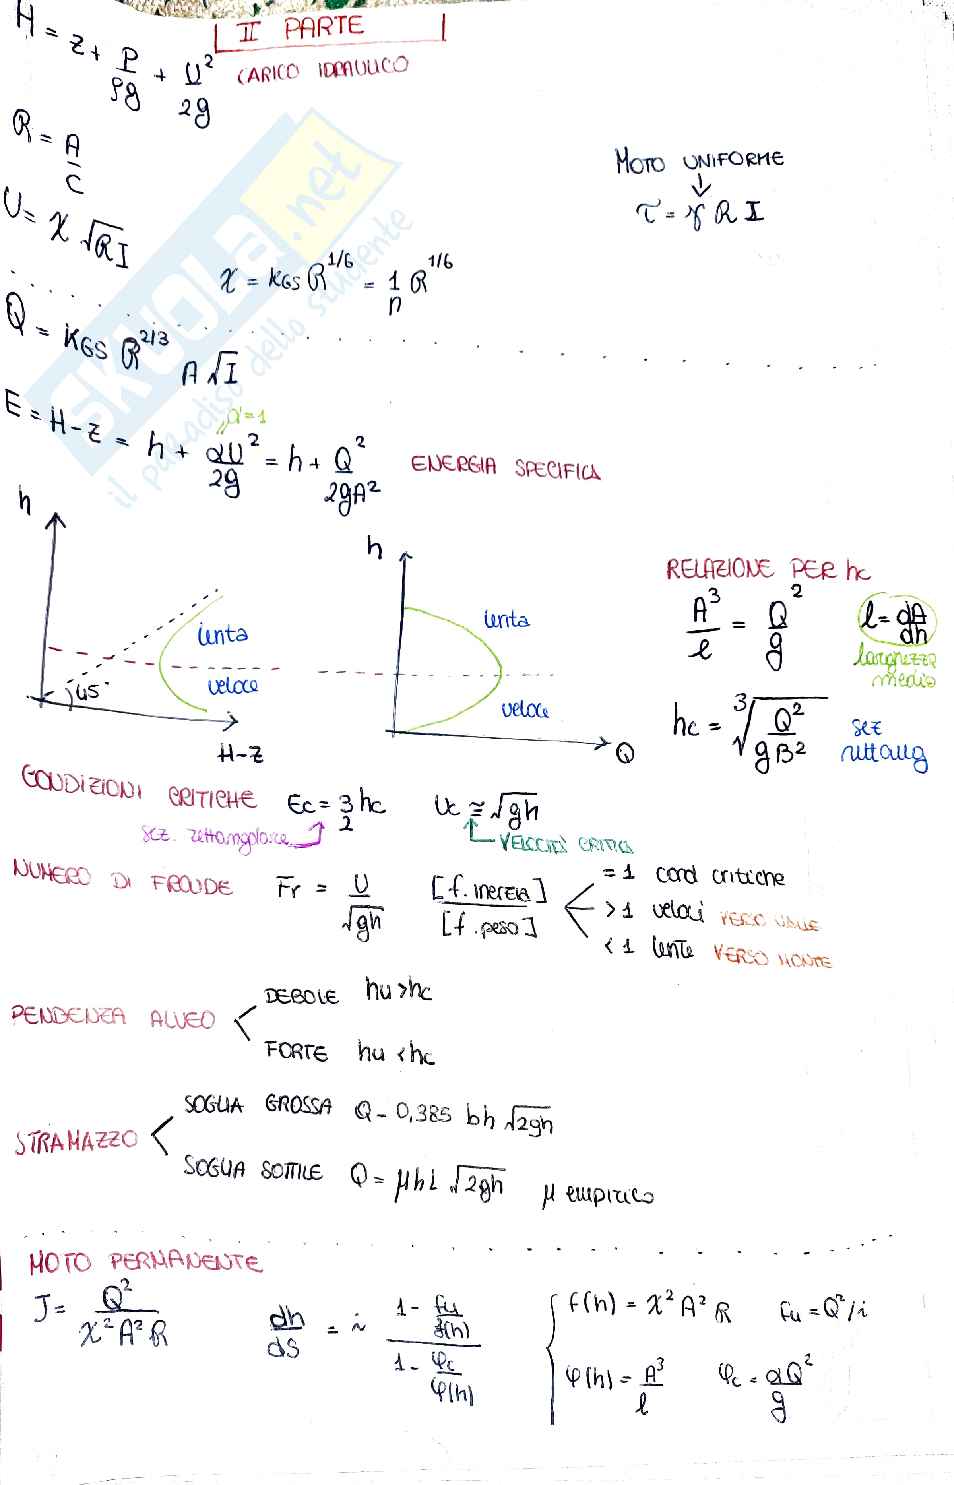 II PARTE
H = z + P/ρg + U²/2g
CARICO IDRAULICO
R = A/C
MOTO UNIFORME
↓
τ = γ R I
U = χ √RI
χ = KGS R^1/6 = 1/n R^1/6
Q = KGS R^2/3 A √I
SKUOLA.net
il paradiso dello studente
α=1
E = H-z = h + αU²/2g = h + Q²/2gA² ENERGIA SPECIFICA
h
lenta
veloce
45°
H-z
h
lenta
veloce
Q
RELAZIONE PER hc
A³/l = Q²/g
l = dA/dh
larghezza
media
hc = ³√Q²/gB² sez
rettang
CONDIZIONI CRITICHE Ec = 3/2 hc Uc ≅ √gh
sez. rettangolare
VELOCITÀ CRITICA
NUMERO DI FROUDE Fr = U/√gh [f. inerzia]/[f. peso]
= 1 cond critiche
> 1 veloci VERSO VALLE
< 1 lente VERSO MONTE
PENDENZA ALVEO
DEBOLE hu > hc
FORTE hu < hc
STRAMAZZO
SOGLIA GROSSA Q = 0,385 bh √2gh
SOGLIA SOTTILE Q = μhL √2gh μ empirico
MOTO PERMANENTE
J = Q²/χ²A²R
dh/ds = i (1 - fu/f(h))/(1 - φc/φ(h))
f(h) = χ² A² R fu = Q²/i
φ(h) = A³/l φc = αQ²/g